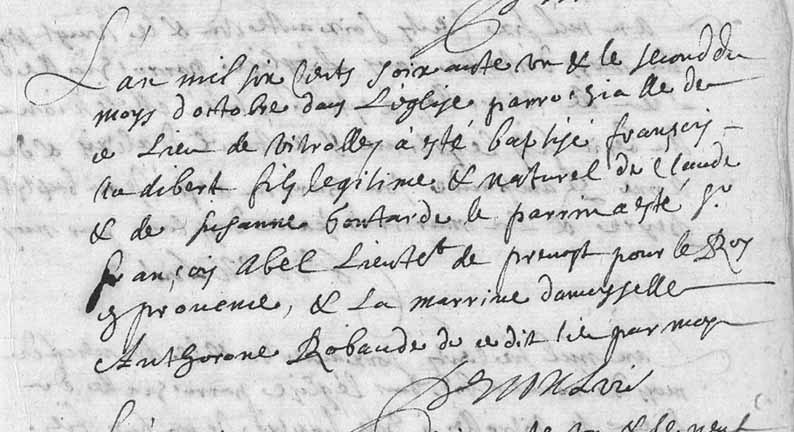 L'an mil six Cents soixante un & le second du
moys d'octobre dans L'eglise parrossialle de
ce Lieu de Vitrolles à esté baptisé françois
Audibert fils legitime & naturel de Claude
& de Susanne goutarde le parrin à esté Sr
françois Abel Lieutet de prevost pour le Roy
en provence, & La marrine damoyselle
Anthorone Robaude de ce dit lieu par moy